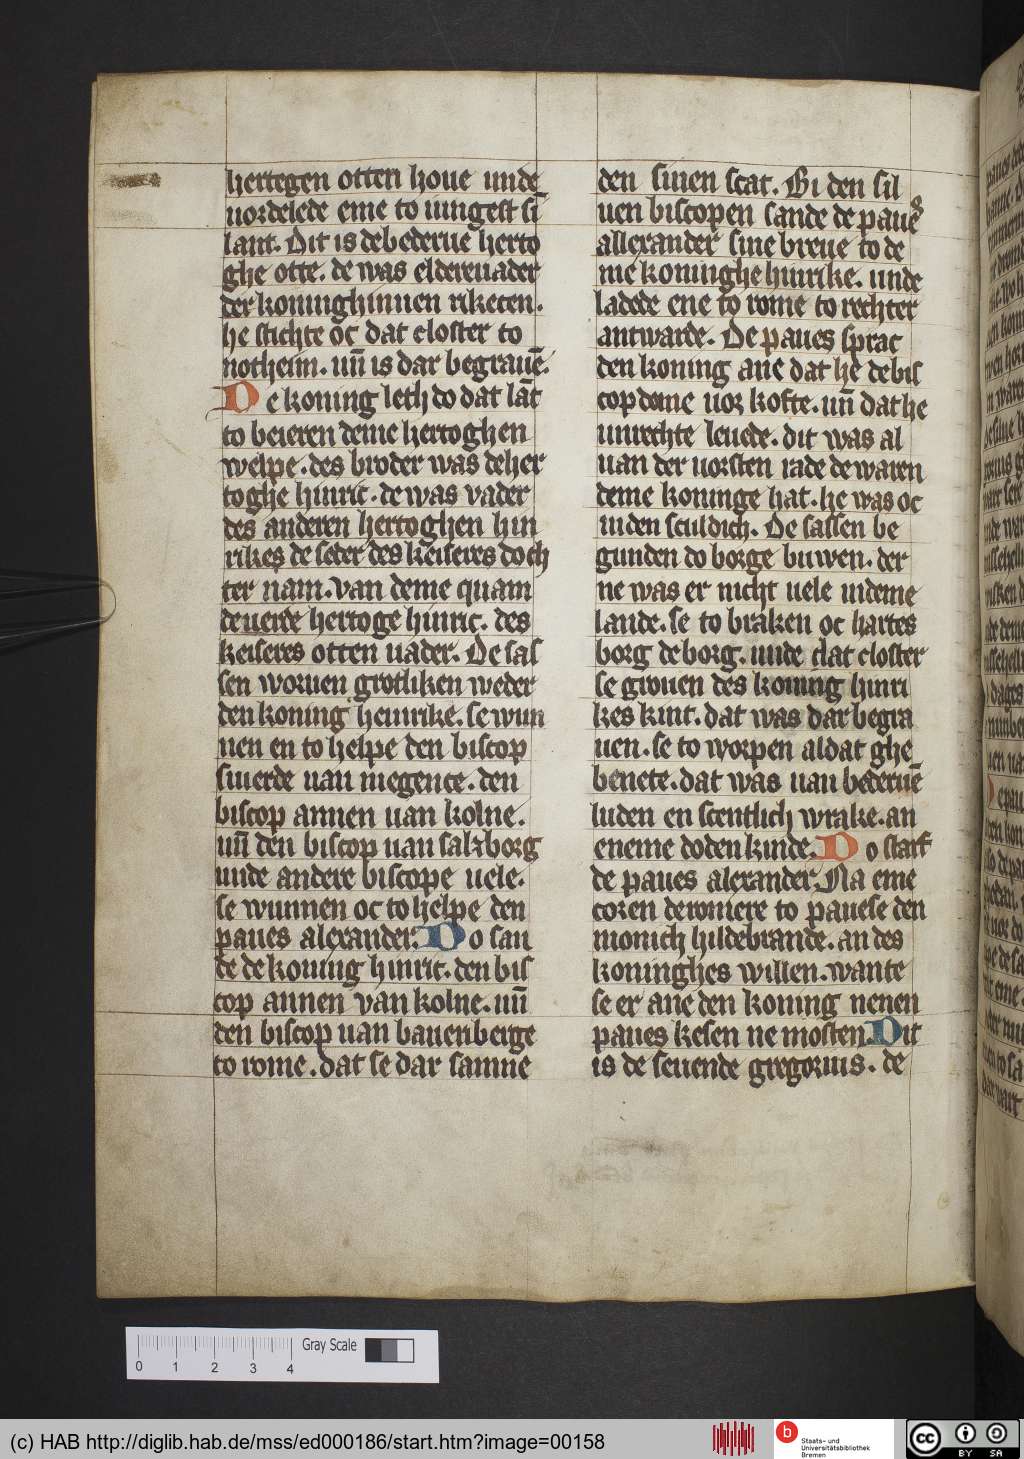 hertegen otten houe unde
uordelede eme to iungest si̅
lant. Dit is de bederue herto
ghe otte. de was elderuader
der koninghinnen rikecen.
he stichte oc dat closter to
notheim. un̅ is dar begraue̅.
De koning leth do dat la̅t
to beieren deme hertoghen
welpe. des broder was de her
toghe hinric. de was vader
des anderen hertoghen hin
rikes de seder des keiseres doch
ter nam. van deme quam
de uerde hertoge hinric. des
keiseres otten uader. De sas
sen woruen grotliken weder
den koning heinrike. se wun
nen en to helpe den biscop
siuerde uan megence. den
biscop annen uan kolne.
un̅ den biscop uan salzborg
unde andere biscope uele.
se wunnen oc to helpe den
paues alexander. Do san
de de koning hinric. den bis
cop annen van kolne. un̅
den biscop uan bauenberge
to rome. dat se dar samne
den sinen scat. Bi den sil
uen biscopen sande de paues
allexander sine breue to de
me koninghe hinrike. unde
ladede ene to rome to rechter
antwarde. De paues sprac
den koning ane dat he de bis
copdome uor kofte. un̅ dat he
unrechte leuede. dit was al
uan der uorsten rade de waren
deme koninge hat. he was oc
inden sculdich. De sassen be
gunden do borge buwen. der
ne was er nicht uele indeme
lande. se to braken oc hartes
borg de borg. unde dat closter
se grouen des koning hinri
kes kint. dat was dar begra
uen. se to worpen al dat ghe
benete. dat was uan bederue̅
luden en scentlich wrake. an
eneme doden kinde. Do starf
de paues alexander. Na eme
coren de romere to pauese den
monich hildebrande. an des
koninghes willen. wante
se er ane den koning nenen
paues kesen ne mosten. Dit
is de seuende gregorius. de
0 1 2 3 4
Gray Scale
(c) HAB http://diglib.hab.de/mss/ed000186/start.htm?image=00158
Staats- und
Universitätsbibliothek
Bremen
CC BY SA